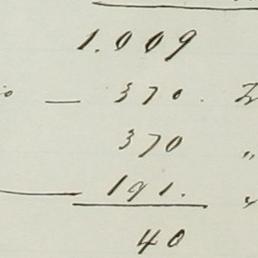 1.009
— 370.
370 "
191.
40